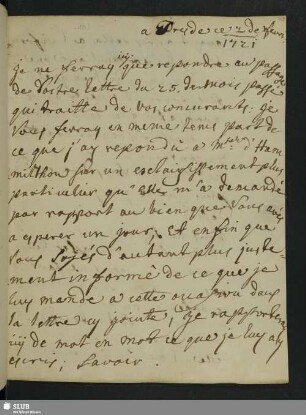 a Dresde ce 2 de Fevr:
1721
Je ne ferray icy que repondre au passage
de Vostre lettre du 25. du mois passé
qui traitte de vos concurants. Je
Vous ferray en meme tems part de
ce que j'ay repondu a Mr d'Ham
milthon sur un esclaircissement plus
particulier qu' m'a demandé
par rapport au bien que Vous avés
a esperer un jour. Et enfin que
Vous soyés d'autant plus juste-
ment informé de ce que je
luy mande a cette occasion dans
la lettre cy jointe, je rapporteray
icy de mot en mot ce que je luy ay
escris; Savoir.
SLUB